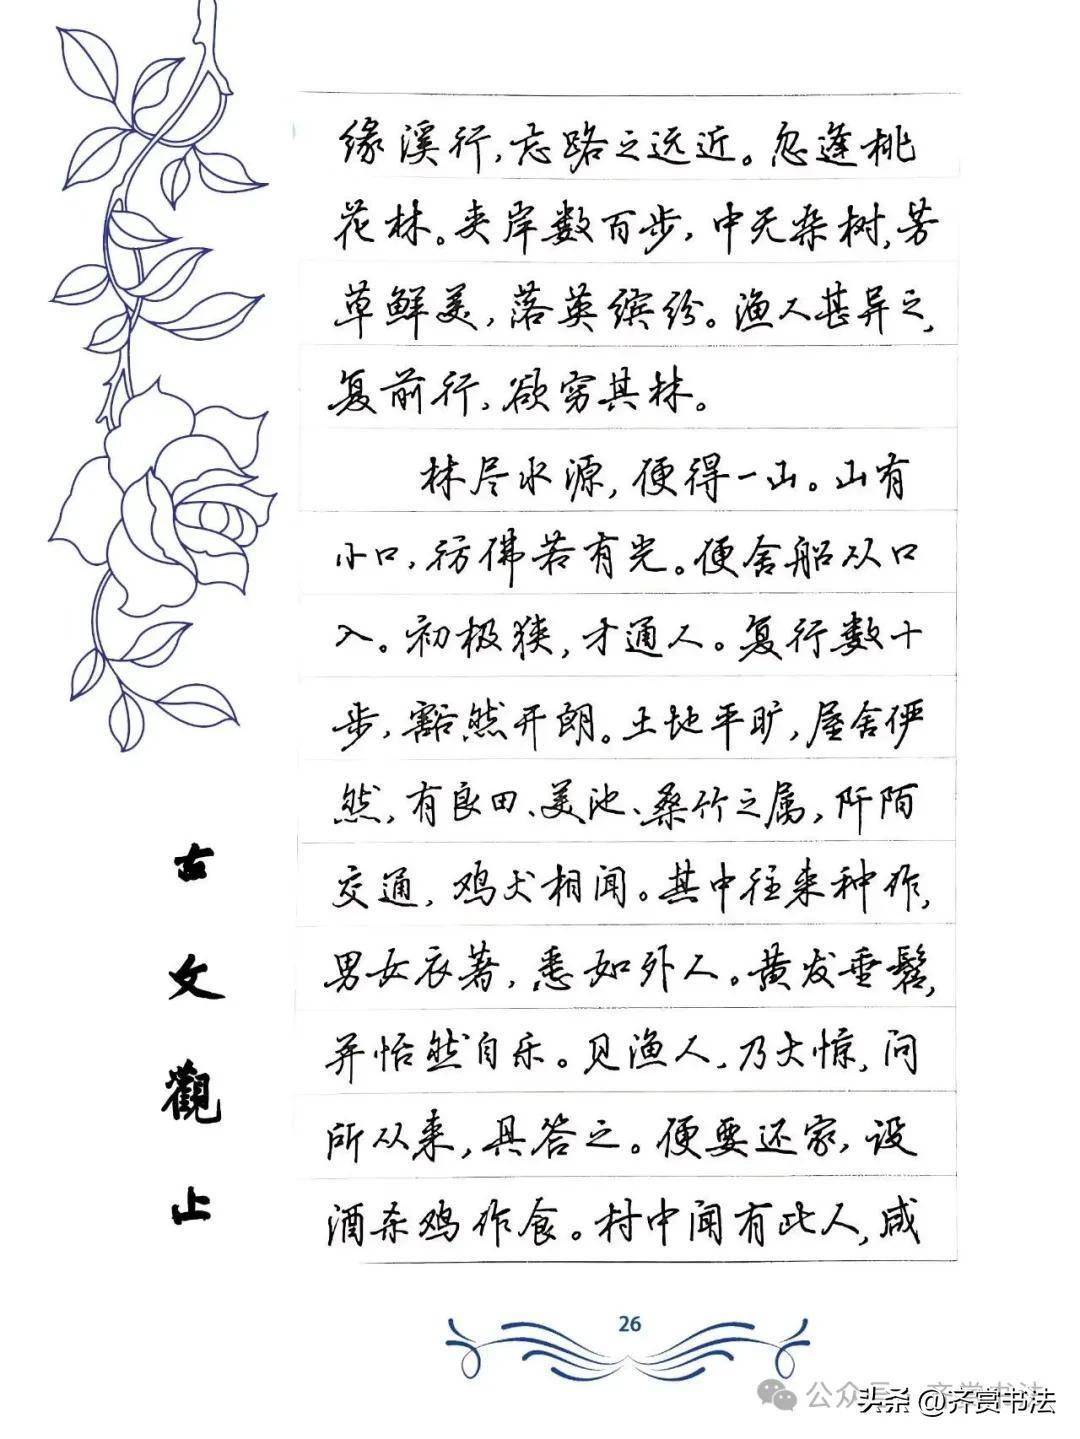 缘溪行,忘路之远近。忽逢桃
花林。夹岸数百步,中无杂树,芳
草鲜美,落英缤纷。渔人甚异之,
复前行,欲穷其林。
林尽水源,便得一山。山有
小口,彷佛若有光。便舍船从口
入。初极狭,才通人。复行数十
步,豁然开朗。土地平旷,屋舍俨
然,有良田、美池、桑竹之属,阡陌
交通,鸡犬相闻。其中往来种作,
男女衣著,悉如外人。黄发垂髫,
并怡然自乐。见渔人,乃大惊,问
所从来,具答之。便要还家,设
酒杀鸡作食。村中闻有此人,咸
古文觀止
26
公众号 齐赏书法
头条 @齐赏书法